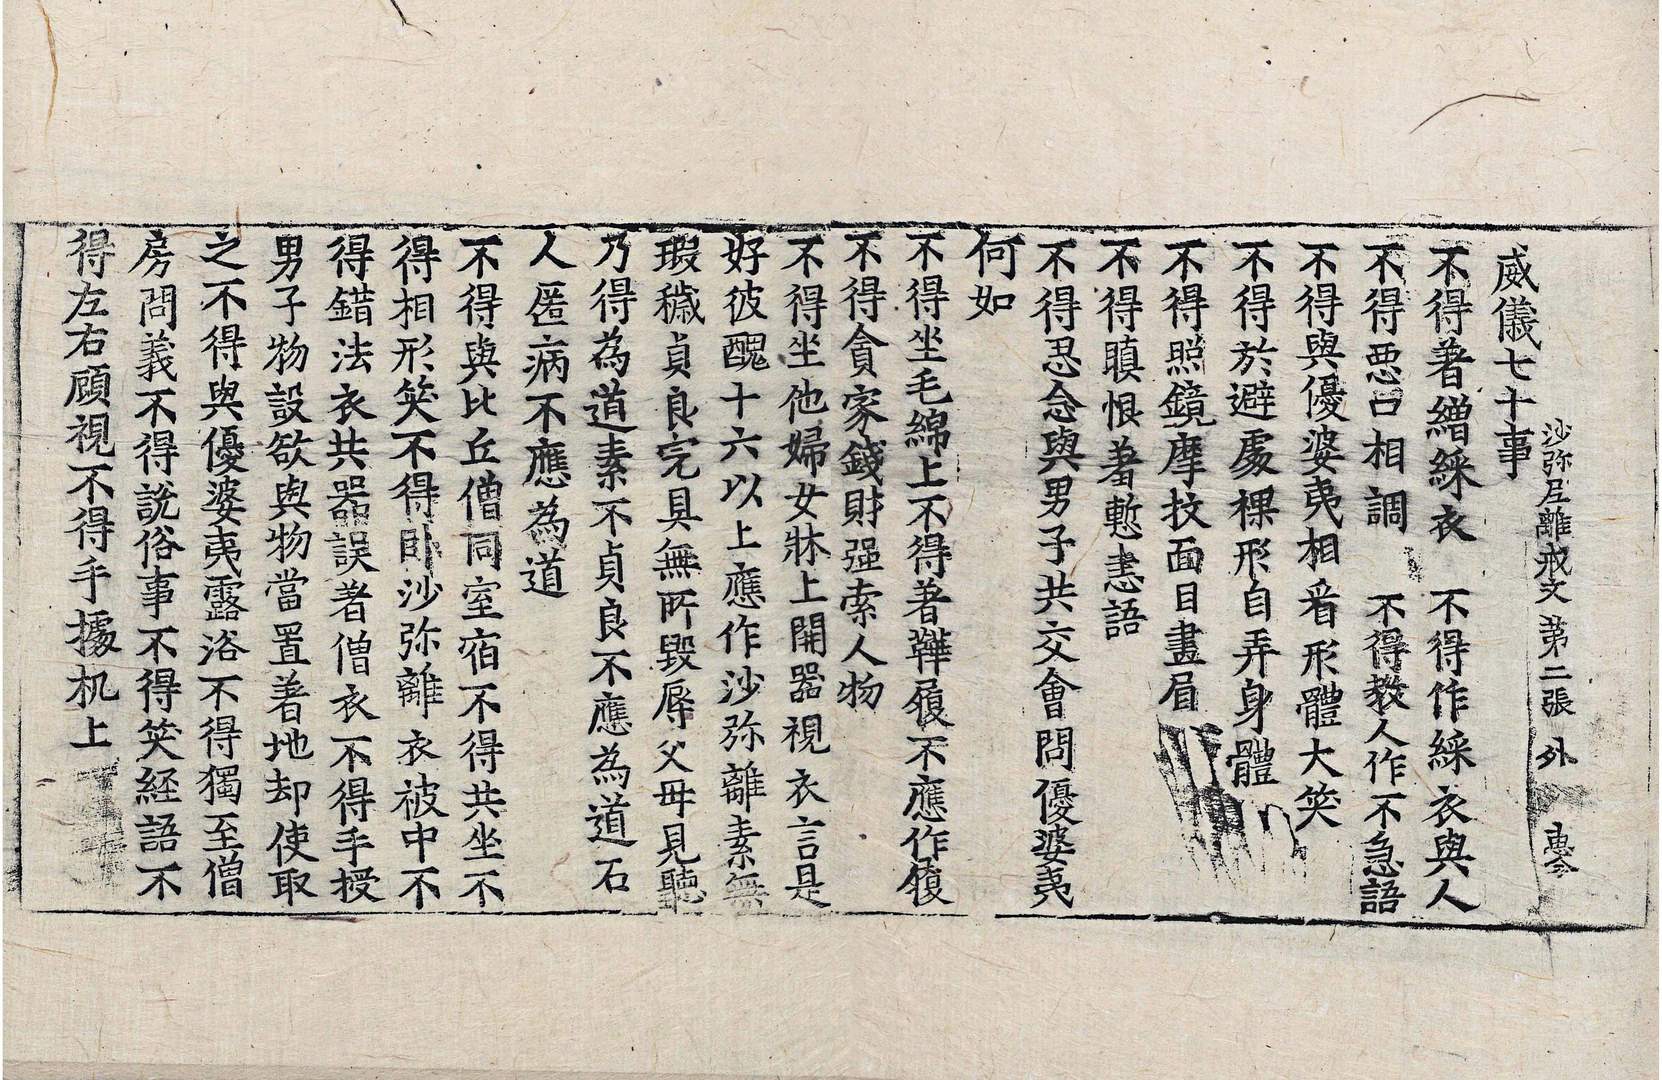 沙弥尼離戒文 第二張 外 惠今
威儀七十事
不得著繒綵衣 不得作綵衣與人
不得惡口相調 不得教人作不急語
不得與優婆夷相看形體大笑
不得於避處裸形自弄身體
不得照鏡摩抆面目畫眉
不得瞋恨羞慙恚語
不得思念與男子共交會問優婆夷
何如
不得坐毛綿上不得著鞾履不應作履
不得貪家錢財强索人物
不得坐他婦女牀上開器視衣言是
好彼醜十六以上應作沙弥離素無
瑕穢貞良完具無所毀辱父母見聽
乃得為道素不貞良不應為道石
人匿病不應為道
不得與比丘僧同室宿不得共坐不
得相形笑不得卧沙弥離衣被中不
得錯法衣共器誤著僧衣不得手授
男子物設欲與物當置著地却使取
之不得與優婆夷露浴不得獨至僧
房問義不得說俗事不得笑経語不
得左右顧視不得手據机上